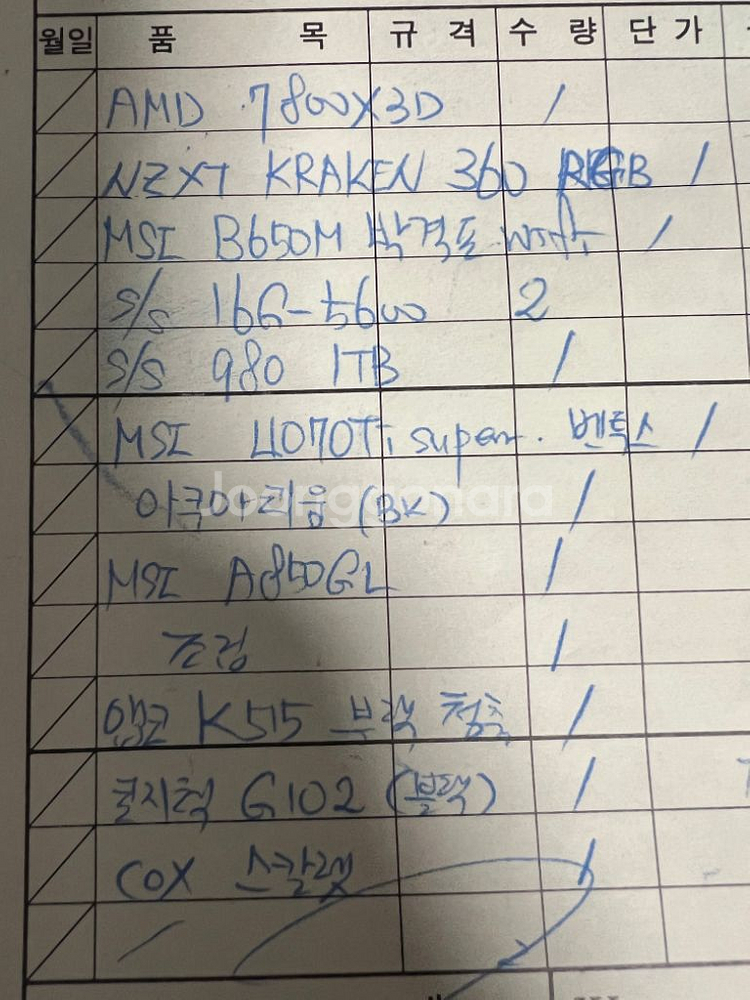 월일 품 목 규 격 수 량 단 가
AMD 7800X3D 1
NZXT KRAKEN 360 RGB 1
MSI B650M 박격포 wifi 1
S/S 16G-5600 2
S/S 980 1TB 1
MSI 4070Ti super. 벤투스 1
아쿠아리움 (BK) 1
Joonggonara
MSI A850GL 1
조립 1
앱코 K515 블랙 청축 1
로지텍 G102 (블랙) 1
COX 스칼렛 1